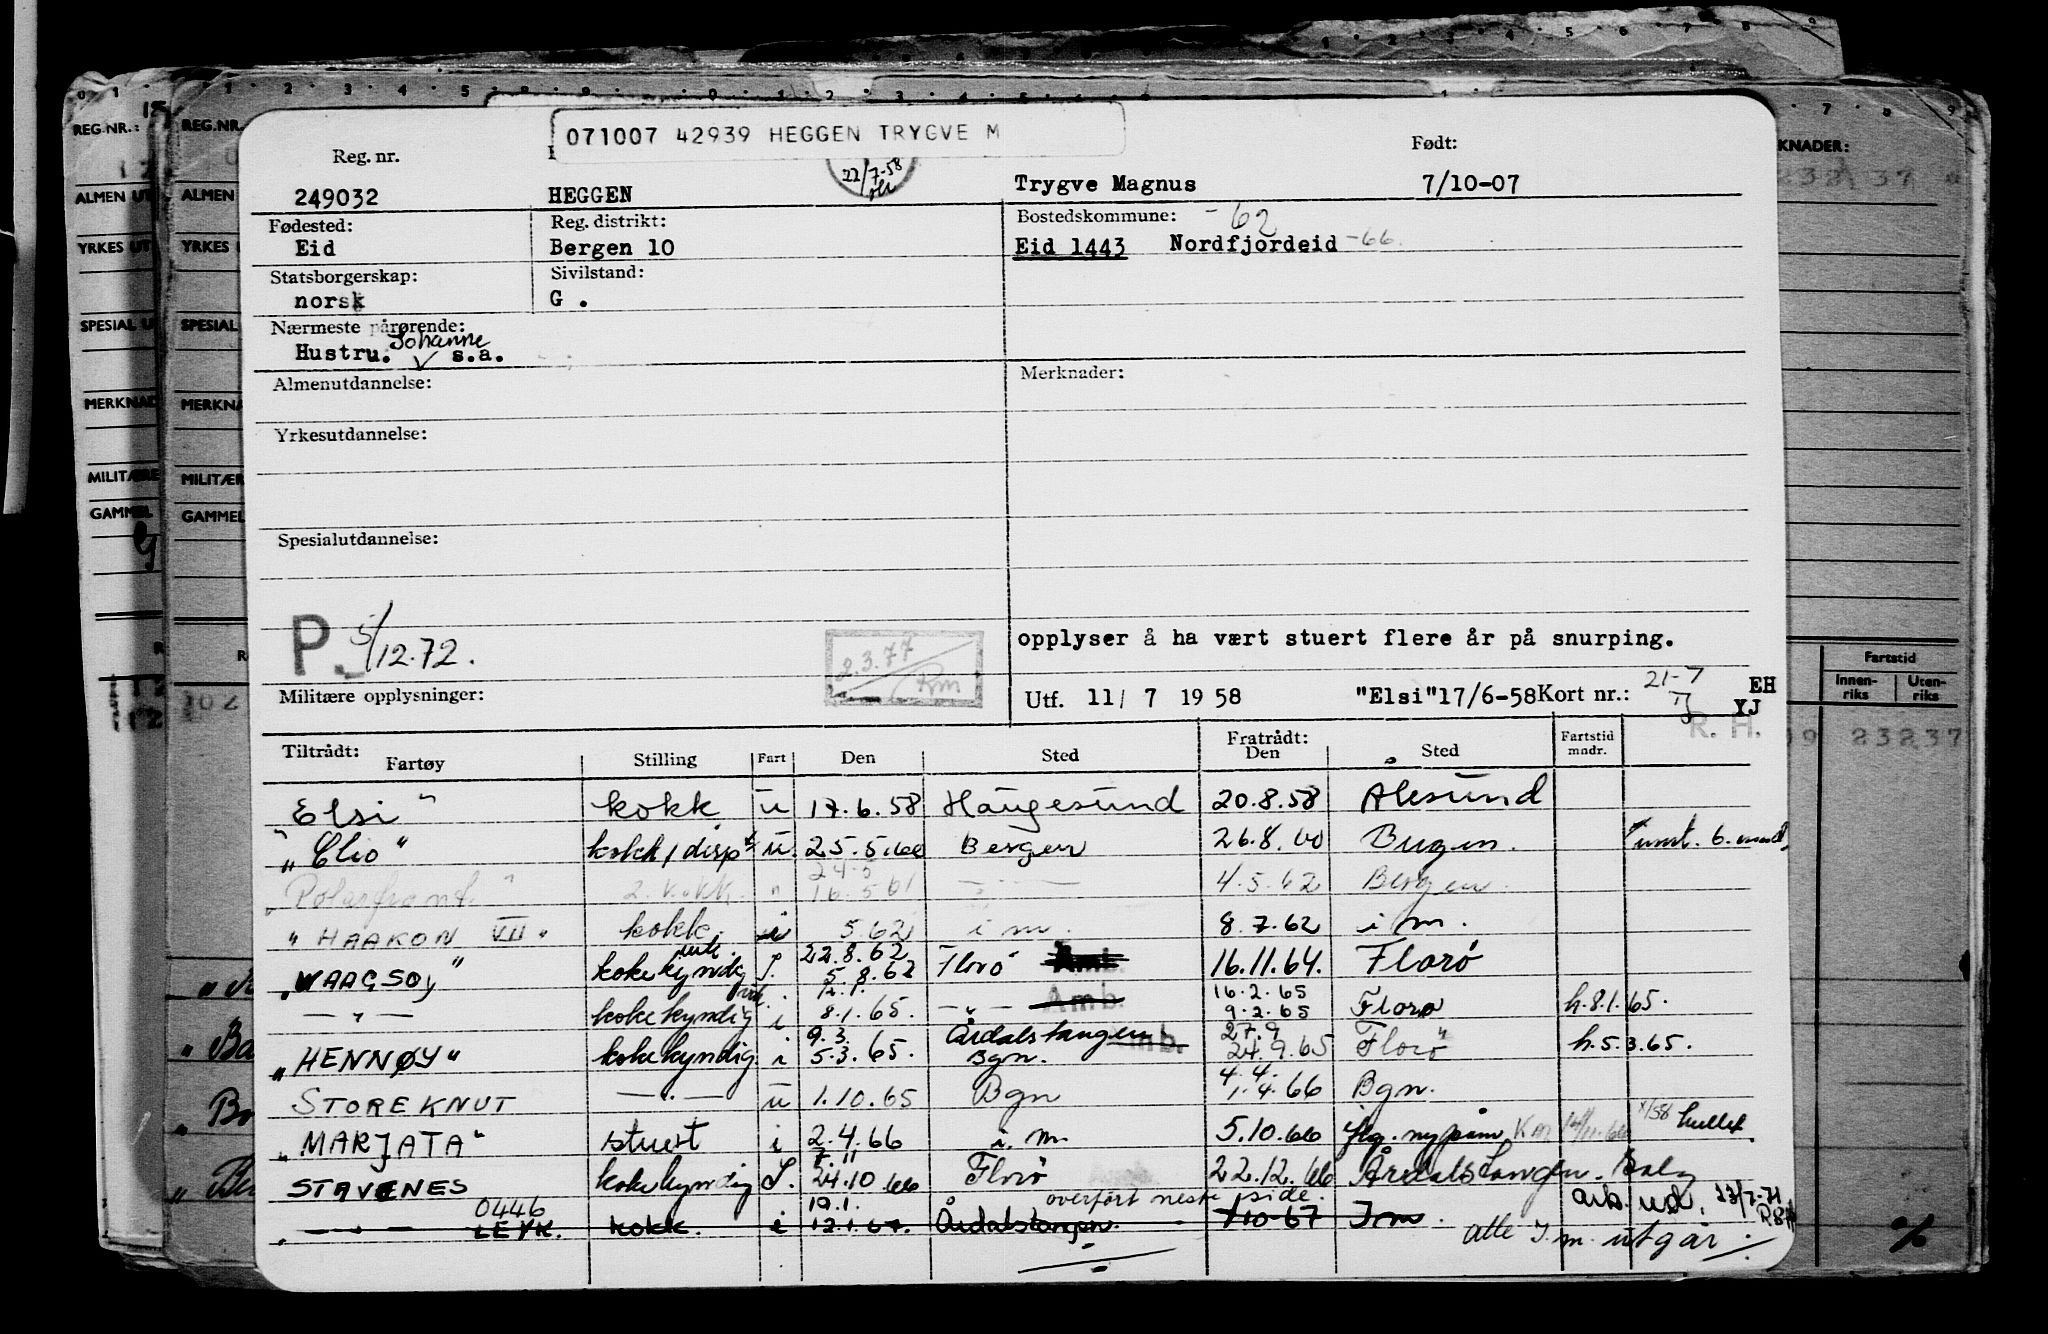 071007 42939 HEGGEN TRYGVE M
Reg. nr. Født:
22/7-58
249032 HEGGEN Trygve Magnus 7/10-07
Fødested: Reg. distrikt: Bostedskommune: -62
Eid Bergen 10 Eid 1443 Nordfjordeid -66.
Statsborgerskap: Sivilstand:
norsk G .
Nærmeste pårørende:
Hustru. Johanne s.a.
Almenutdannelse: Merknader:
Yrkesutdannelse:
Spesialutdannelse:
P. 5/12.72.
2.3.77 Rm
opplyser å ha vært stuert flere år på snurping.
Militære opplysninger: Utf. 11/ 7 1958 "Elsi"17/6-58 Kort nr.: 21-7 EH
YJ
R. H.
Tiltrådt: Fratrådt: Fartstid
Fartøy Stilling Fart Den Sted Den Sted mndr.
"Elsi" kokk u 17.6.58 Haugesund 20.8.58 Ålesund
"Clio" kokk/disp u. 25.5.60 Bergen 26.8.60
"Polarfront" 2. kokk " 16.5.61 — " — 4.5.62 Bergen
"HAAKON VII" kokk i 5.62 i m. 8.7.62 i m.
22.8.62
"WAAGSØY" kokekyndig 5.8.62 Florø Amb. 16.11.64. Florø
12.1. 16.2.65
— " — kokekyndig i 8.1.65. — " — Amb. 9.2.65 Florø h.8.1.65.
9.3. Årdalstangen 27.9
"HENNØY" kokekyndig i 5.3.65. Bgn. 24.9.65 Florø h.5.3.65.
4.4.
STOREKNUT — " — u 1.10.65 Bgn 1.4.66 Bgn.
"MARJATA" stuert i 2.4.66 i. m. 5.10.66
7.11
STAVENES kokekyndig 24.10.66 Florø 22.12.66 Årdalstangen.
0446 19.1. overført neste side.
— " — LEYK. kokk. i 12.1.67. Årdalstangen. 1.10-67 I m. arb. ud. 23/7-71
alle I.m. utgår
REG.NR.:
ALMEN UT
YRKES UT
SPESIAL U
MERKNAD
MILITÆRE
GAMMEL
REG.NR.
ALMEN
YRKES U
SPESIAL
MERKNA
MILITÆR
GAMMEL
KNADER:
23237
Fartstid
Innen-riks Uten-riks
23237